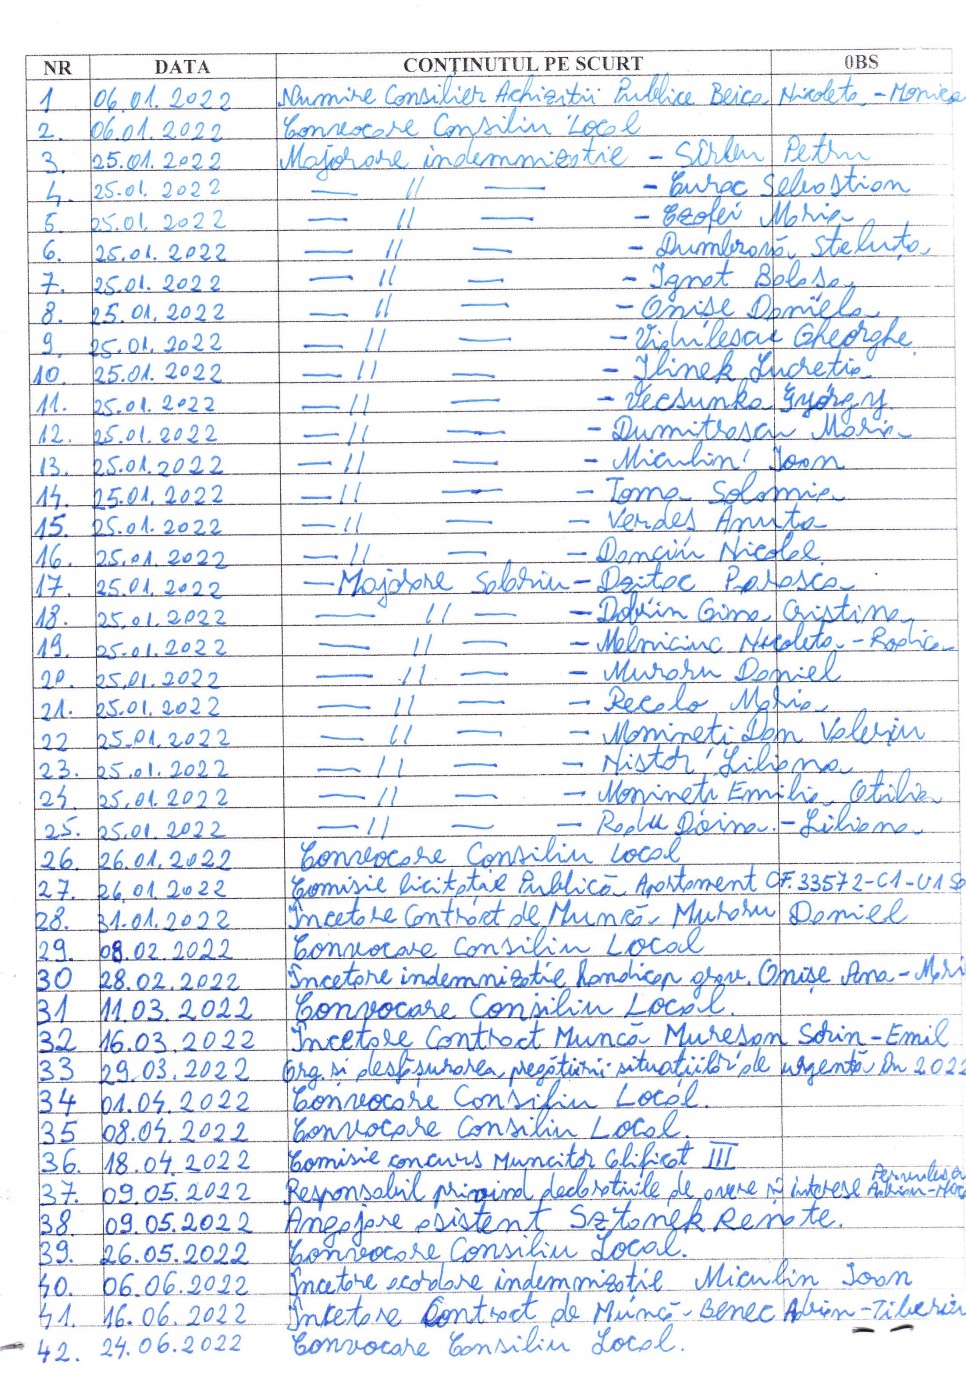 NR DATA CONȚINUTUL PE SCURT 0BS
1 06.01.2022 Numire Consilier Achizitii Publice Beica Nicoleta - Monica
2. 06.01.2022 Convocare Consiliu Local
3. 25.01.2022 Majorare indemnizatie - Sîrbu Petru
4. 25.01.2022 — // — - Curac Sebastian
5 25.01.2022 — // — - Czofei Maria
6. 25.01.2022 — // — - Dumbravă Steluța
7. 25.01.2022 — // — - Ignat Balasa
8. 25.01.2022 — // — - Onise Daniela
9 25.01.2022 — // — - Gheorghe
10. 25.01.2022 — // — - Ilinek Lucretia
11. 25.01.2022 — // — - Vecsunka György
12. 25.01.2022 — // — - Dumitrascu Maria
13. 25.01.2022 — // — - Miculin Ioan
14. 25.01.2022 — // — - Toma Solomia
15. 25.01.2022 — // — - Verdes Anuta
16. 25.01.2022 — // — - Danciu Nicolae
17. 25.01.2022 — Majorare Salariu - Dzitac Parasca
18. 25.01.2022 — // — - Dobrin Gina Cristina
19. 25.01.2022 — // — - Melniciuc Nicoleta - Rodica
20. 25.01.2022 — // — - Muraru Daniel
21. 25.01.2022 — // — - Recalo Maria
22 25.01.2022 — // — - Momineti Dan Valeriu
23. 25.01.2022 — // — - Nistor Liliana
24. 25.01.2022 — // — - Momineti Emilia Otilia
25. 25.01.2022 — // — - Radu Doina - Liliana
26. 26.01.2022 Convocare Consiliu Local
27. 26.01.2022 Comisie licitatie Publică Apartament CF. 33572-C1-U1
28. 31.01.2022 Incetare Contract de Muncă Muraru Daniel
29. 08.02.2022 Convocare Consiliu Local
30 28.02.2022 Incetare indemnizatie handicap grav. Onișe Ana - Mari
31 11.03.2022 Convocare Consiliu Local.
32 16.03.2022 Incetare Contract Muncă Muresan Sorin-Emil
33 29.03.2022 Org. și desfășurarea pregătirii situațiilor de urgență în 2022
34 01.04.2022 Convocare Consiliu Local.
35 08.04.2022 Convocare Consiliu Local.
36. 18.04.2022 Comisie concurs Muncitor Calificat III
37. 09.05.2022 Responsabil privind declaratiile de avere și interese
38 09.05.2022 Angajare asistent Sztanek Renate.
39. 26.05.2022 Convocare Consiliu Local.
40. 06.06.2022 Incetare acordare indemnizatie Miculin Ioan
41. 16.06.2022 Incetare Contract de Muncă - Benec Adrian-Tiberiu
42. 24.06.2022 Convocare Consiliu Local.